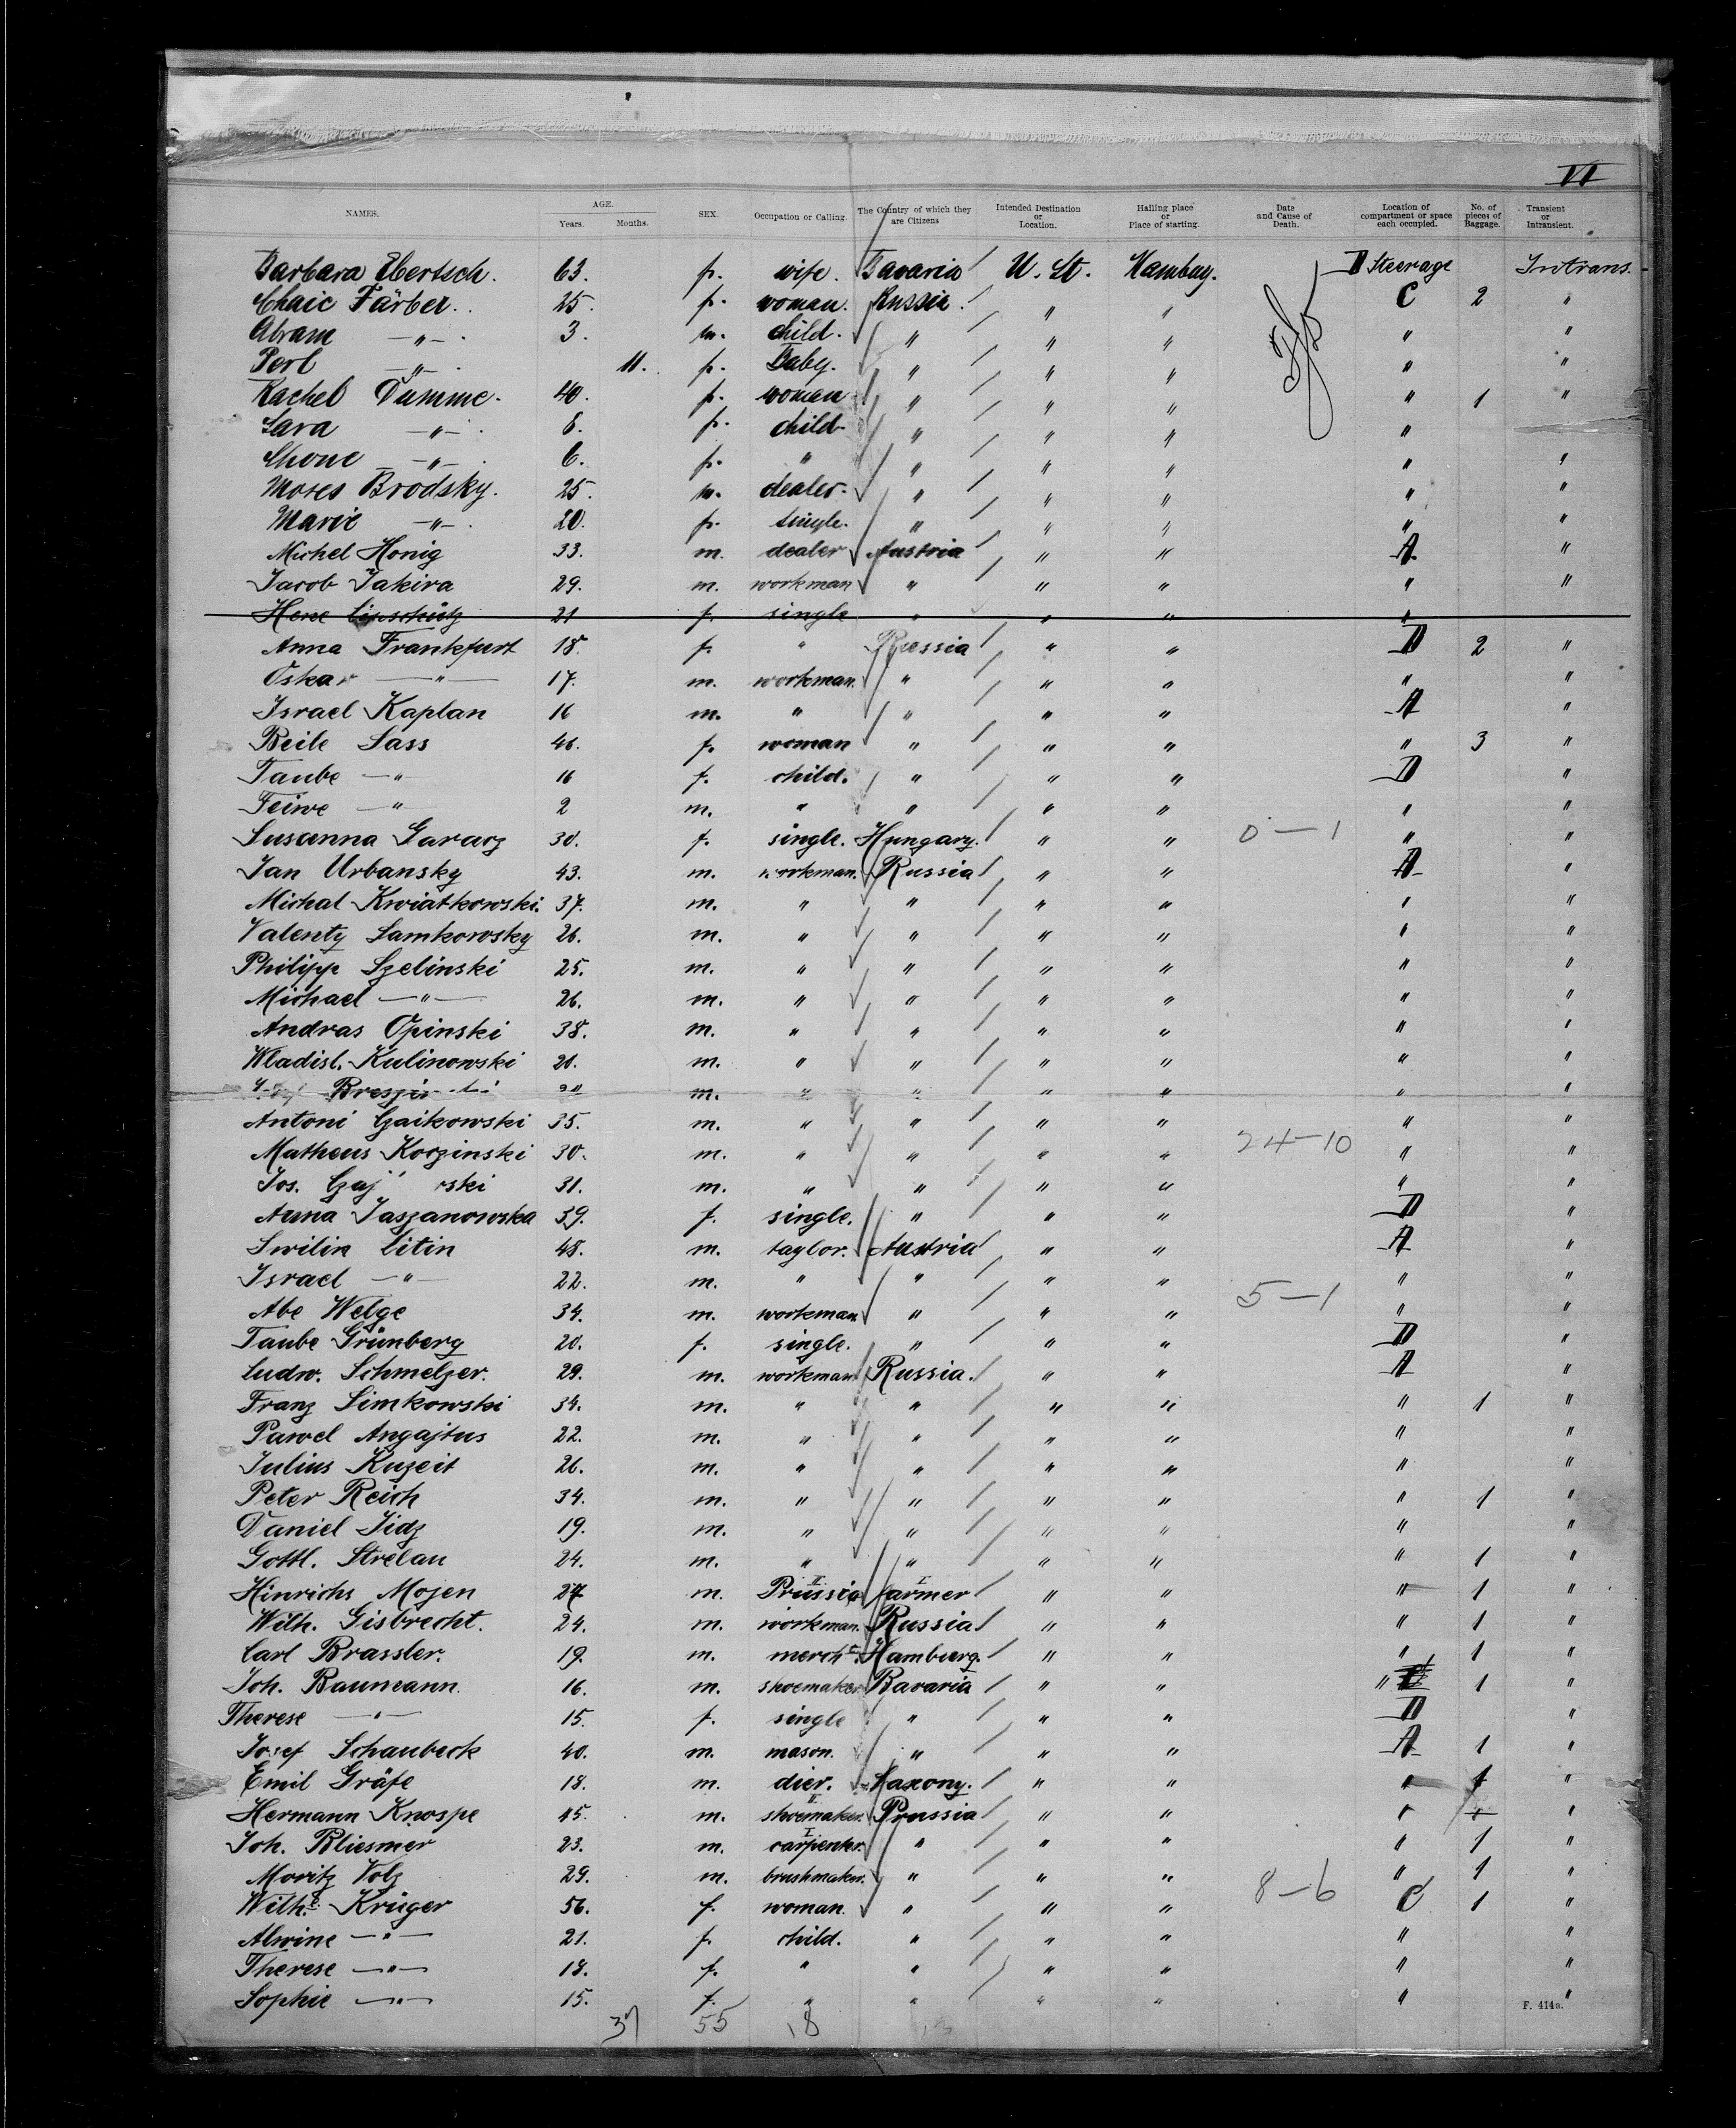 VI
NAMES. AGE. Years. Months. SEX. Occupation or Calling. The Country of which they are Citizens Intended Destination or Location. Hailing place or Place of starting. Date and Cause of Death. Location of compartment or space each occupied. No. of pieces of Baggage. Transient or Intransient.
Barbara Ebertsch. 63. f. wife. Bavaria U. St. Hamburg. D Steerage Intrans.
Chaie Färber. 25. f. woman. Russia. " " C 2 "
Abram —"—. 3. m. child. " " " " "
Perl —"—. 11. f. Baby. " " " " "
Rachel 40. f. woman " " " " 1 "
Sara —"—. 8. f. child " " " "
—"—. 6. f. " " " " " "
Moses Brodsky. 25. m. dealer. " " " " "
Marie —"—. 20. f. single. " " " " "
Michel Honig 33. m. dealer Austria " " A "
Jacob Jakira 29. m. workman " " " " "
21 f. single " " " "
Anna Frankfurt 18. f. " Russia " " D 2 "
Oskar —"— 17. m. workman. " " " " "
Israel Kaplan 16 m. " " " " A "
Beile Sass 46. f. woman " " " " 3 "
Taube —" 16 f. child. " " " D "
Feiwe —" 2 m. " " " " " "
Susanna Gararz 30. f. single. Hungary. " " 0—1 " "
Jan Urbansky 43. m. workman. Russia " " A "
Michal Kwiatkowski. 37. m. " " " " " "
Valenty Samkowsky 26. m. " " " " " "
Philipp Szelinski 25. m. " " " " " "
Michael —"— 26. m. " " " " " "
Andras Opinski 38. m. " " " " " "
Wladisl. Kulinowski 20. m. " " " " " "
m. " " " " " "
Antoni Czaikowski 35. m. " " " " " "
Matheus Korzinski 30. m. " " " " 24—10 " "
Jos. 31. m. " " " " " "
Anna Jaszanowska 39. f. single. " " " D "
Swilin Citin 48. m. taylor. Austria " " A "
Israel —"— 22. m. " " " " " "
Abe Welge 34. m. workman " " " 5—1 " "
Taube Grünberg 20. f. single. " " " D "
Ludw. Schmelzer. 29. m. workman Russia. " " A "
Franz Simkowski 34. m. " " " " " 1 "
Pawel Angajtus 22. m. " " " " " "
Julius Kuzeit 26. m. " " " " " "
Peter Reich 34. m. " " " " " 1 "
Daniel Jidz 19. m. " " " " " "
Gottl. Strelau 24. m. " " " " " 1 "
Hinrichs Mojen 27 m. II Prussia I farmer " " " 1 "
Wilh. Gisbrecht. 24. m. workman. Russia " " " 1 "
Carl Brassler. 19. m. mercht. Hamburg. " " " 1 "
Joh. Baumann. 16. m. shoemaker Bavaria " " " 1 "
Therese —"— 15. f. single " " " D "
Josef Schaubeck 40. m. mason. " " " A 1 "
Emil Gräfe 18. m. dier. Saxony. " " " 1 "
Hermann Knospe 45. m. II shoemaker. Prussia " " " 1 "
Joh. Bliesmer 23. m. I carpenter. " " " " 1 "
Moritz Volz 29. m. brushmaker. " " " " 1 "
Wilhe. Krüger 56. f. woman. " " " 8—6 C 1 "
Alwine —"— 21. f. child. " " " " "
Therese —"— 18. f. " " " " " "
Sophie —"— 15. f. " " " " " "
F. 414a.
37 55 18